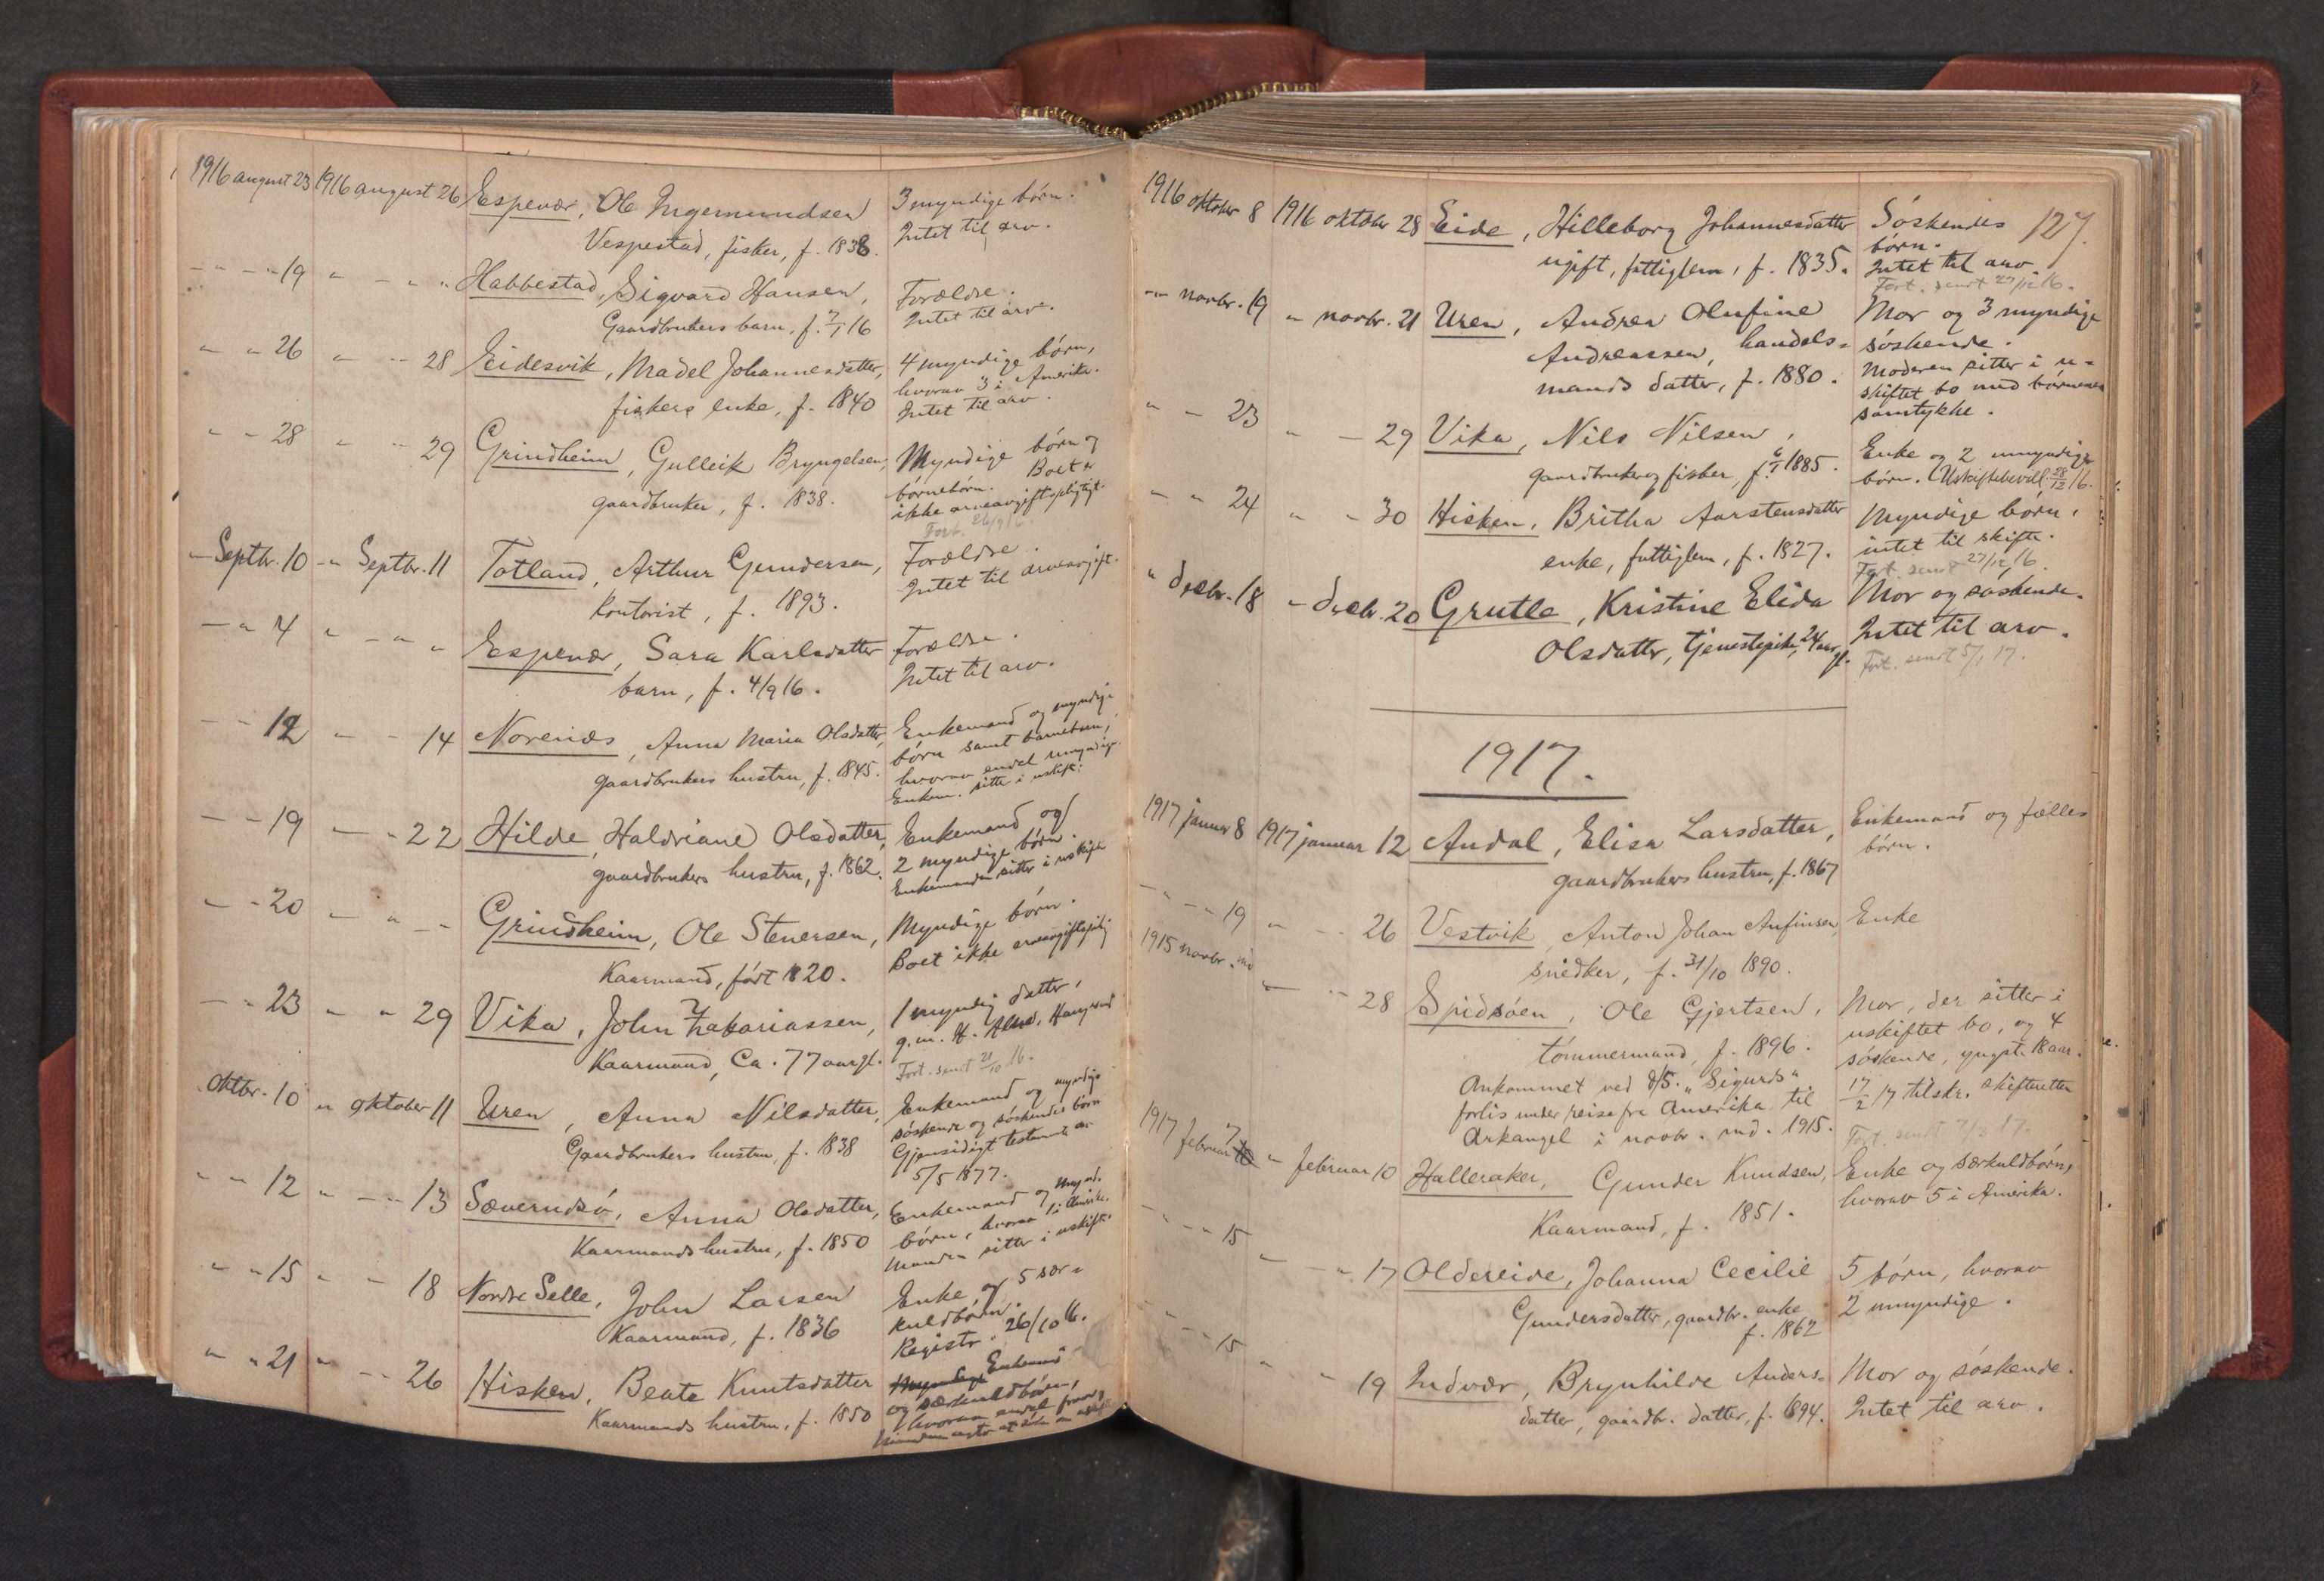 1916 august 23 1916 august 26 Espevær, Ole Ingemundsen 3 myndige børn.
Vespestad, fisker, f. 1838. Intet til arv.
" " 19 " " " Habbestad, Sigvard Hansen, Forældre.
Gaardbrukers barn, f. 7/1 16 Intet til arv.
" " 26 " " 28 Eidesvik, Madel Johannesdatter, 4 myndige børn,
fiskers enke, f. 1840 hvorav 3 i Amerika.
Intet til arv.
" " 28 " " 29 Grindheim, Gulleik Bryngelsen, Myndige børn og
gaardbruker, f. 1838. børnebørn. Boet er
ikke arveavgiftspligtigt.
Fort. 26/9 16.
" Septbr. 10 " Septbr. 11 Totland, Arthur Gundersen, Forældre.
kontorist, f. 1893. Intet til arveavgift.
" " 4 " " " Espevær, Sara Karlsdatter Forældre.
barn, f. 4/9 16. Intet til arv.
" " 12 " " 14 Norenæs, Anna Maria Olsdatter, Enkemand og myndige
gaardbrukers hustru, f. 1845. børn samt barnebørn,
hvorav endel umyndige.
Enkem. sitter i uskift.
" " 19 " " 22 Hilde, Haldriane Olsdatter, Enkemand og
gaardbrukers hustru, f. 1862. 2 myndige børn.
Enkemanden sitter i uskifte
" " 20 " " " Grindheim, Ole Stenersen, Myndige børn.
Kaarmand, født 1820. Boet ikke arveavgiftspligtig
" " 23 " " 29 Vika, John Zakariassen, 1 myndig datter,
Kaarmand, Ca. 77 aar gl. g. m. H. Alsen, Haugesund
Fort. sendt 21/10 16.
Oktbr. 10 " oktober 11 Uren, Anna Nilsdatter, Enkemand og myndige
Gaardbrukers hustru, f. 1838 søskende og søskendes børn
Gjensidigt testamente av
5/5 1877.
" " 12 " " 13 Sæverudsø, Anna Olsdatter, Enkemand og mynd.
Kaarmands hustru, f. 1850 børn, hvorav 1 i Amerika.
Manden sitter i uskifte.
" " 15 " " 18 Nordre Selle, John Larsen Enke, og 5 sær=
Kaarmand, f. 1836 kuldbørn.
Registr. 26/10 16.
" " 21 " " 26 Hisken, Beate Knutsdatter Enkemand
Kaarmands hustru, f. 1850 og særkuldbørn,
hvorav endel
127.
1916 oktober 8 1916 oktober 28 Eide, Hilleborg Johannesdatter Søskendes
ugift, fattiglem, f. 1835. børn.
Intet til arv.
Fort. sendt 27/12 16.
" novbr. 19 " novbr. 21 Uren, Andrea Olufine Mor og 3 myndige
Andreassen, handels= søskende.
mands datter, f. 1880. Moderen sitter i u=
skiftet bo med børnenes
samtykke.
" " 23 " " 29 Vika, Nils Nilsen, Enke og 2 umyndige
gaardbruker og fisker, f. 6/1 1885. børn. (Uskiftebevill. 28/12 16.
" " 24 " " 30 Hisken, Britha Aarstensdatter Myndige børn,
enke, fattiglem, f. 1827. intet til skifte.
Fort. sendt 27/12 16.
" decbr. 18 " decbr. 20 Grutle, Kristine Elida Mor og søskende.
Olsdatter, tjenestepike, 24 aar gl. Intet til arv.
Fort. sendt 5/1 17.
1917.
1917 januar 8 1917 januar 12 Andal, Elisa Larsdatter, Enkemand og fælles
gaardbrukers hustru, f. 1867 børn.
" " 19 " " 26 Vestvik, Anton Johan Anfinsen, Enke
snedker, f. 31/10 1890.
1915 novbr. md " " 28 Spidsøen, Ole Gjertsen, Mor, der sitter i
tømmermand, f. 1896. uskiftet bo, og 4
Omkommet ved d/s. "Sigurds" søskende, yngst. 18 aar.
forlis under reise fra Amerika til 17/2 17 tilskr. skifteretten
Arkangel i novbr. md. 1915. Fort. sendt 7/2 17.
1917 februar 7 " februar 10 Halleraker, Gunder Knudsen, Enke og særkuldbørn,
Kaarmand, f. 1851. hvorav 5 i Amerika.
" " 15 " " 17 Oldereide, Johanna Cecilie 5 børn, hvorav
Gundersdatter, gaardbr. enke 2 umyndige.
f. 1862
" " 15 " " 19 Indvær, Brynhilde Anders= Mor og søskende.
datter, gaardbr. datter, f. 1894. Intet til arv.